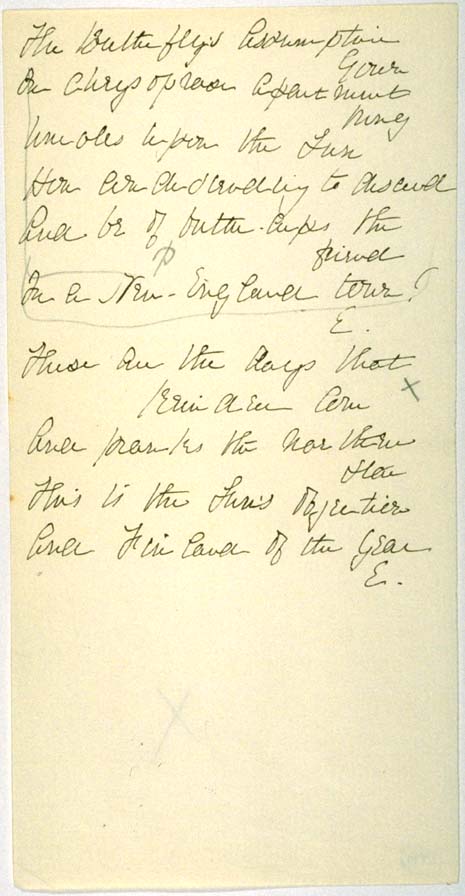 The Butterfly's Assumption
Gown
In Chrysoprase Apartments
hung
upon the Sun
How condescending to descend
And be of Butter-cups the
friend
In a New-England town!
E.
These are the days that
Reindeer love
And pranks the northern
star
This is the Sun's Objective
And Finland of the Year
E.